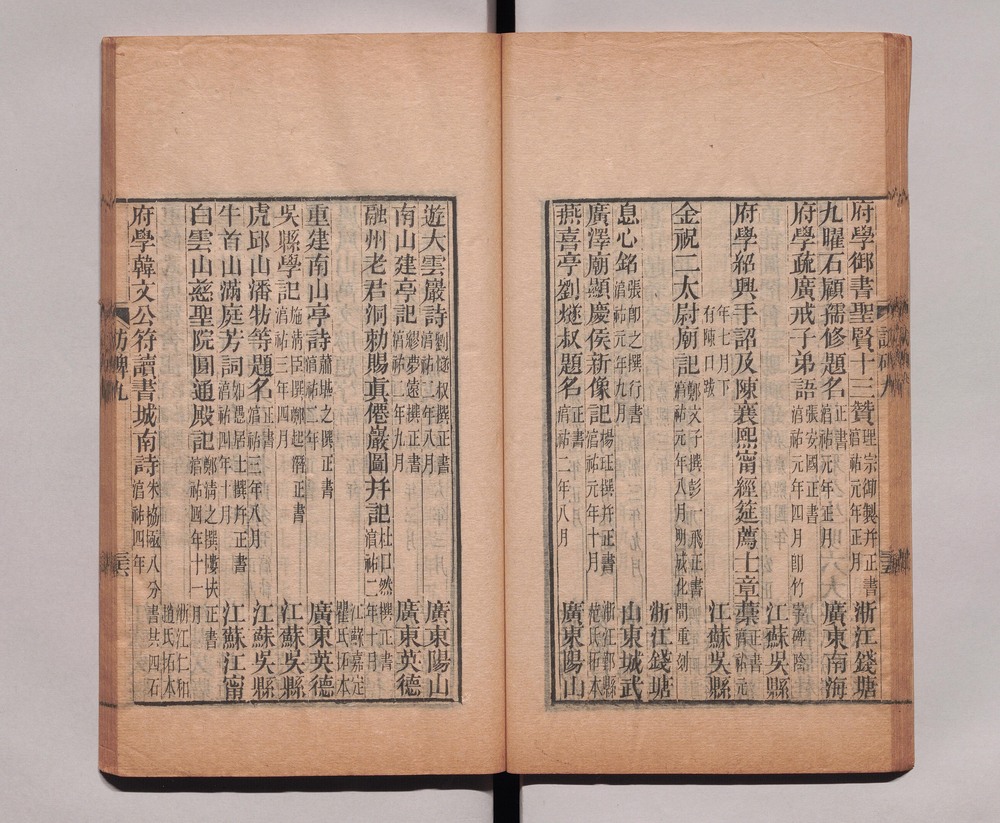 府學御書聖賢十三贊 理宗御製并正書 淳祐元年正月 浙江錢塘
九曜石顧孺修題名 正書 淳祐元年正月 廣東南海
府學疏廣戒子弟語 張安國正書 淳祐元年四月 即竹字碑陰 江蘇吳縣
府學紹興手詔及陳襄熙甯經筵薦士章藁 正書 淳祐元年七月下有陳口跋 江蘇吳縣
金祝二太尉廟記 鄭文子撰彭一飛正書 淳祐元年八月明成化間重刻 浙江錢塘
息心銘 張即之撰行書 淳祐元年九月 山東城武
廣澤廟顯慶侯新像記 楊珏撰并正書 淳祐元年十月 浙江鄞縣范氏拓本
燕喜亭劉燧叔題名 正書 淳祐二年八月 廣東陽山
遊大雲巖詩 劉燧叔撰正書 淳祐二年八月 廣東陽山
南山建亭記 繆夢遠撰正書 淳祐二年九月 廣東英德
融州老君洞勅賜眞僊巖圖并記 杜口然撰正書 淳祐二年十月 江蘇嘉定瞿氏拓本
重建南山亭詩 蕭𡍼之撰正書 淳祐二年 廣東英德
吳縣學記 施清臣撰鄭起潛正書 淳祐三年四月 江蘇吳縣
虎邱山潘牥等題名 正書 淳祐三年八月 江蘇吳縣
牛首山滿庭芳詞 如愚居士撰并正書 淳祐四年十月 江蘇江甯
白雲山慈聖院圓通殿記 鄭清之撰樓扶正書 淳祐四年十一月 浙江仁和趙氏拓本
府學韓文公符讀書城南詩 米協極八分書共四石 淳祐四年
訪碑九
三六